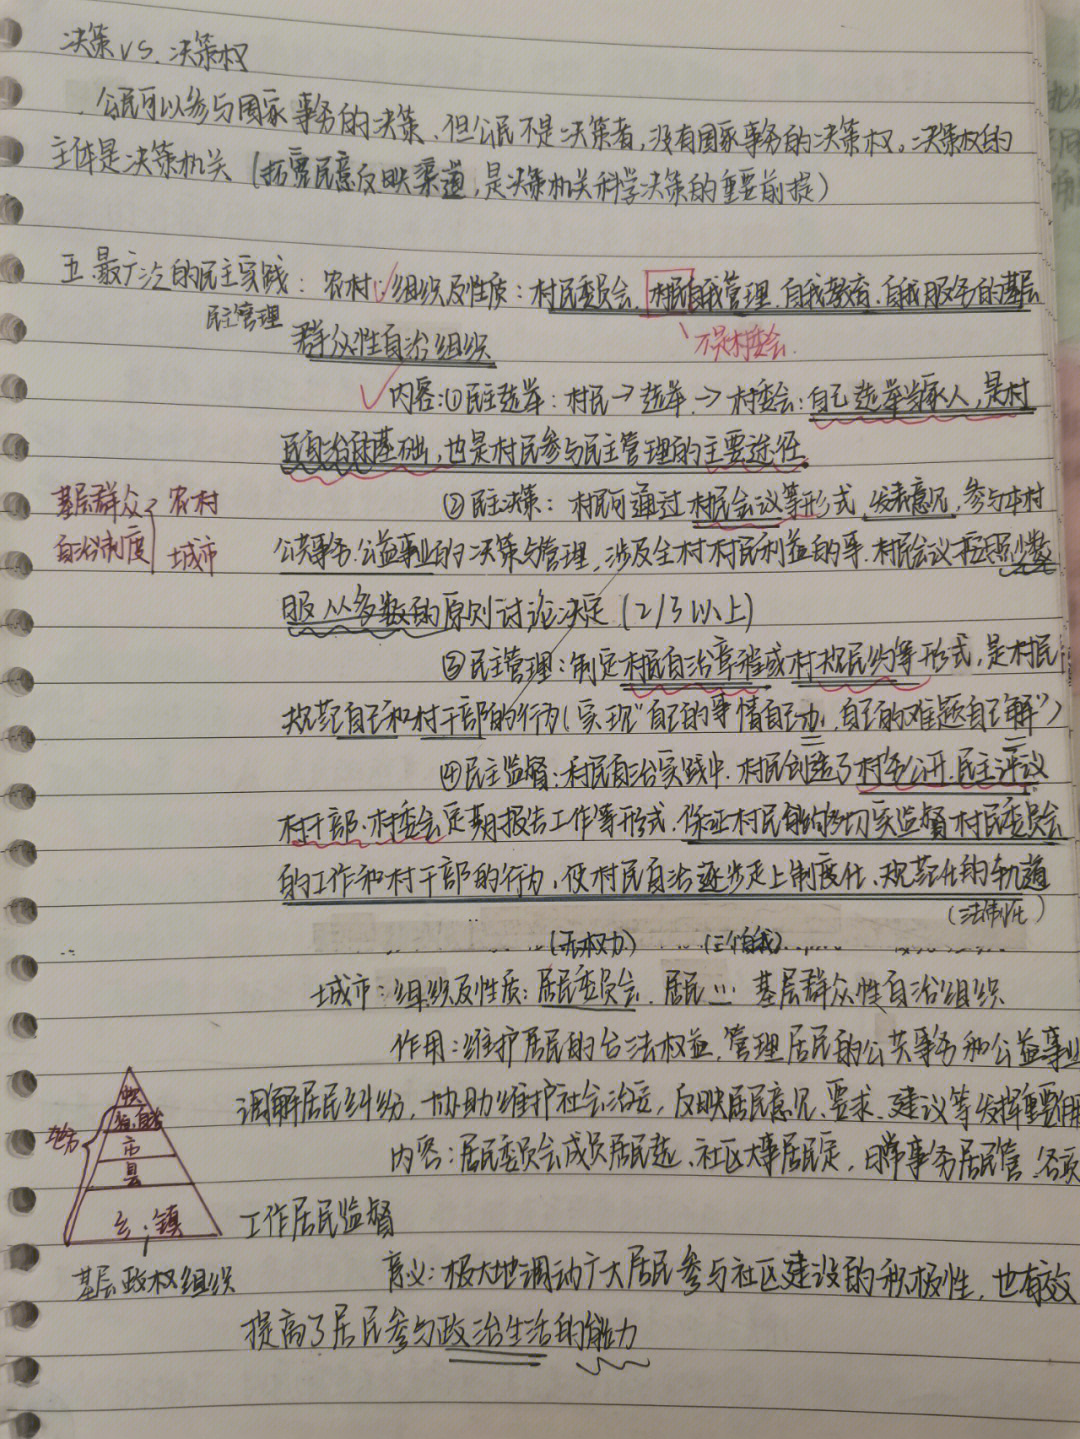 决策 VS. 决策权
公民可以参与国家事务的决策,但公民不是决策者,没有国家事务的决策权。决策权的
主体是决策机关(拓宽民意反映渠道,是决策机关科学决策的重要前提)
五.最广泛的民主实践:农村:组织及性质:村民委员会.村民自我管理.自我教育.自我服务的基层
民主管理
群众性自治组织
不是村委会.
内容:①民主选举:村民→选举→村委会:自己选举当家人,是村
民自治的基础,也是村民参与民主管理的主要途径.
基层群众
自治制度
农村
城市
②民主决策:村民可通过村民会议等形式,发表意见,参与本村
公共事务.公益事业的决策与管理,涉及全村村民利益的事.村民会议按照少数
服从多数的原则讨论决定(2/3以上)
③民主管理:制定村民自治章程或村规民约等形式,是村民
规范自己和村干部的行为(实现"自己的事情自己办,自己的难题自己解")
④民主监督:村民自治实践中.村民创造了村务公开.民主评议
村干部.村委会定期报告工作等形式.保证村民能够切实监督村民委员会
的工作和村干部的行为,使村民自治逐步走上制度化、规范化的轨道
(法制化)
(无权力) (三个自我)
城市:组织及性质:居民委员会.居民…基层群众性自治组织
作用:维护居民的合法权益,管理居民的公共事务和公益事业
调解居民纠纷,协助维护社会治安,反映居民意见、要求、建议等发挥重要作用
内容:居民委员会成员居民选、社区大事居民定,日常事务居民管.各项
工作居民监督
意义:极大地调动广大居民参与社区建设的积极性,也有效
提高了居民参与政治生活的能力
地方
市
县
乡,镇
基层政权组织